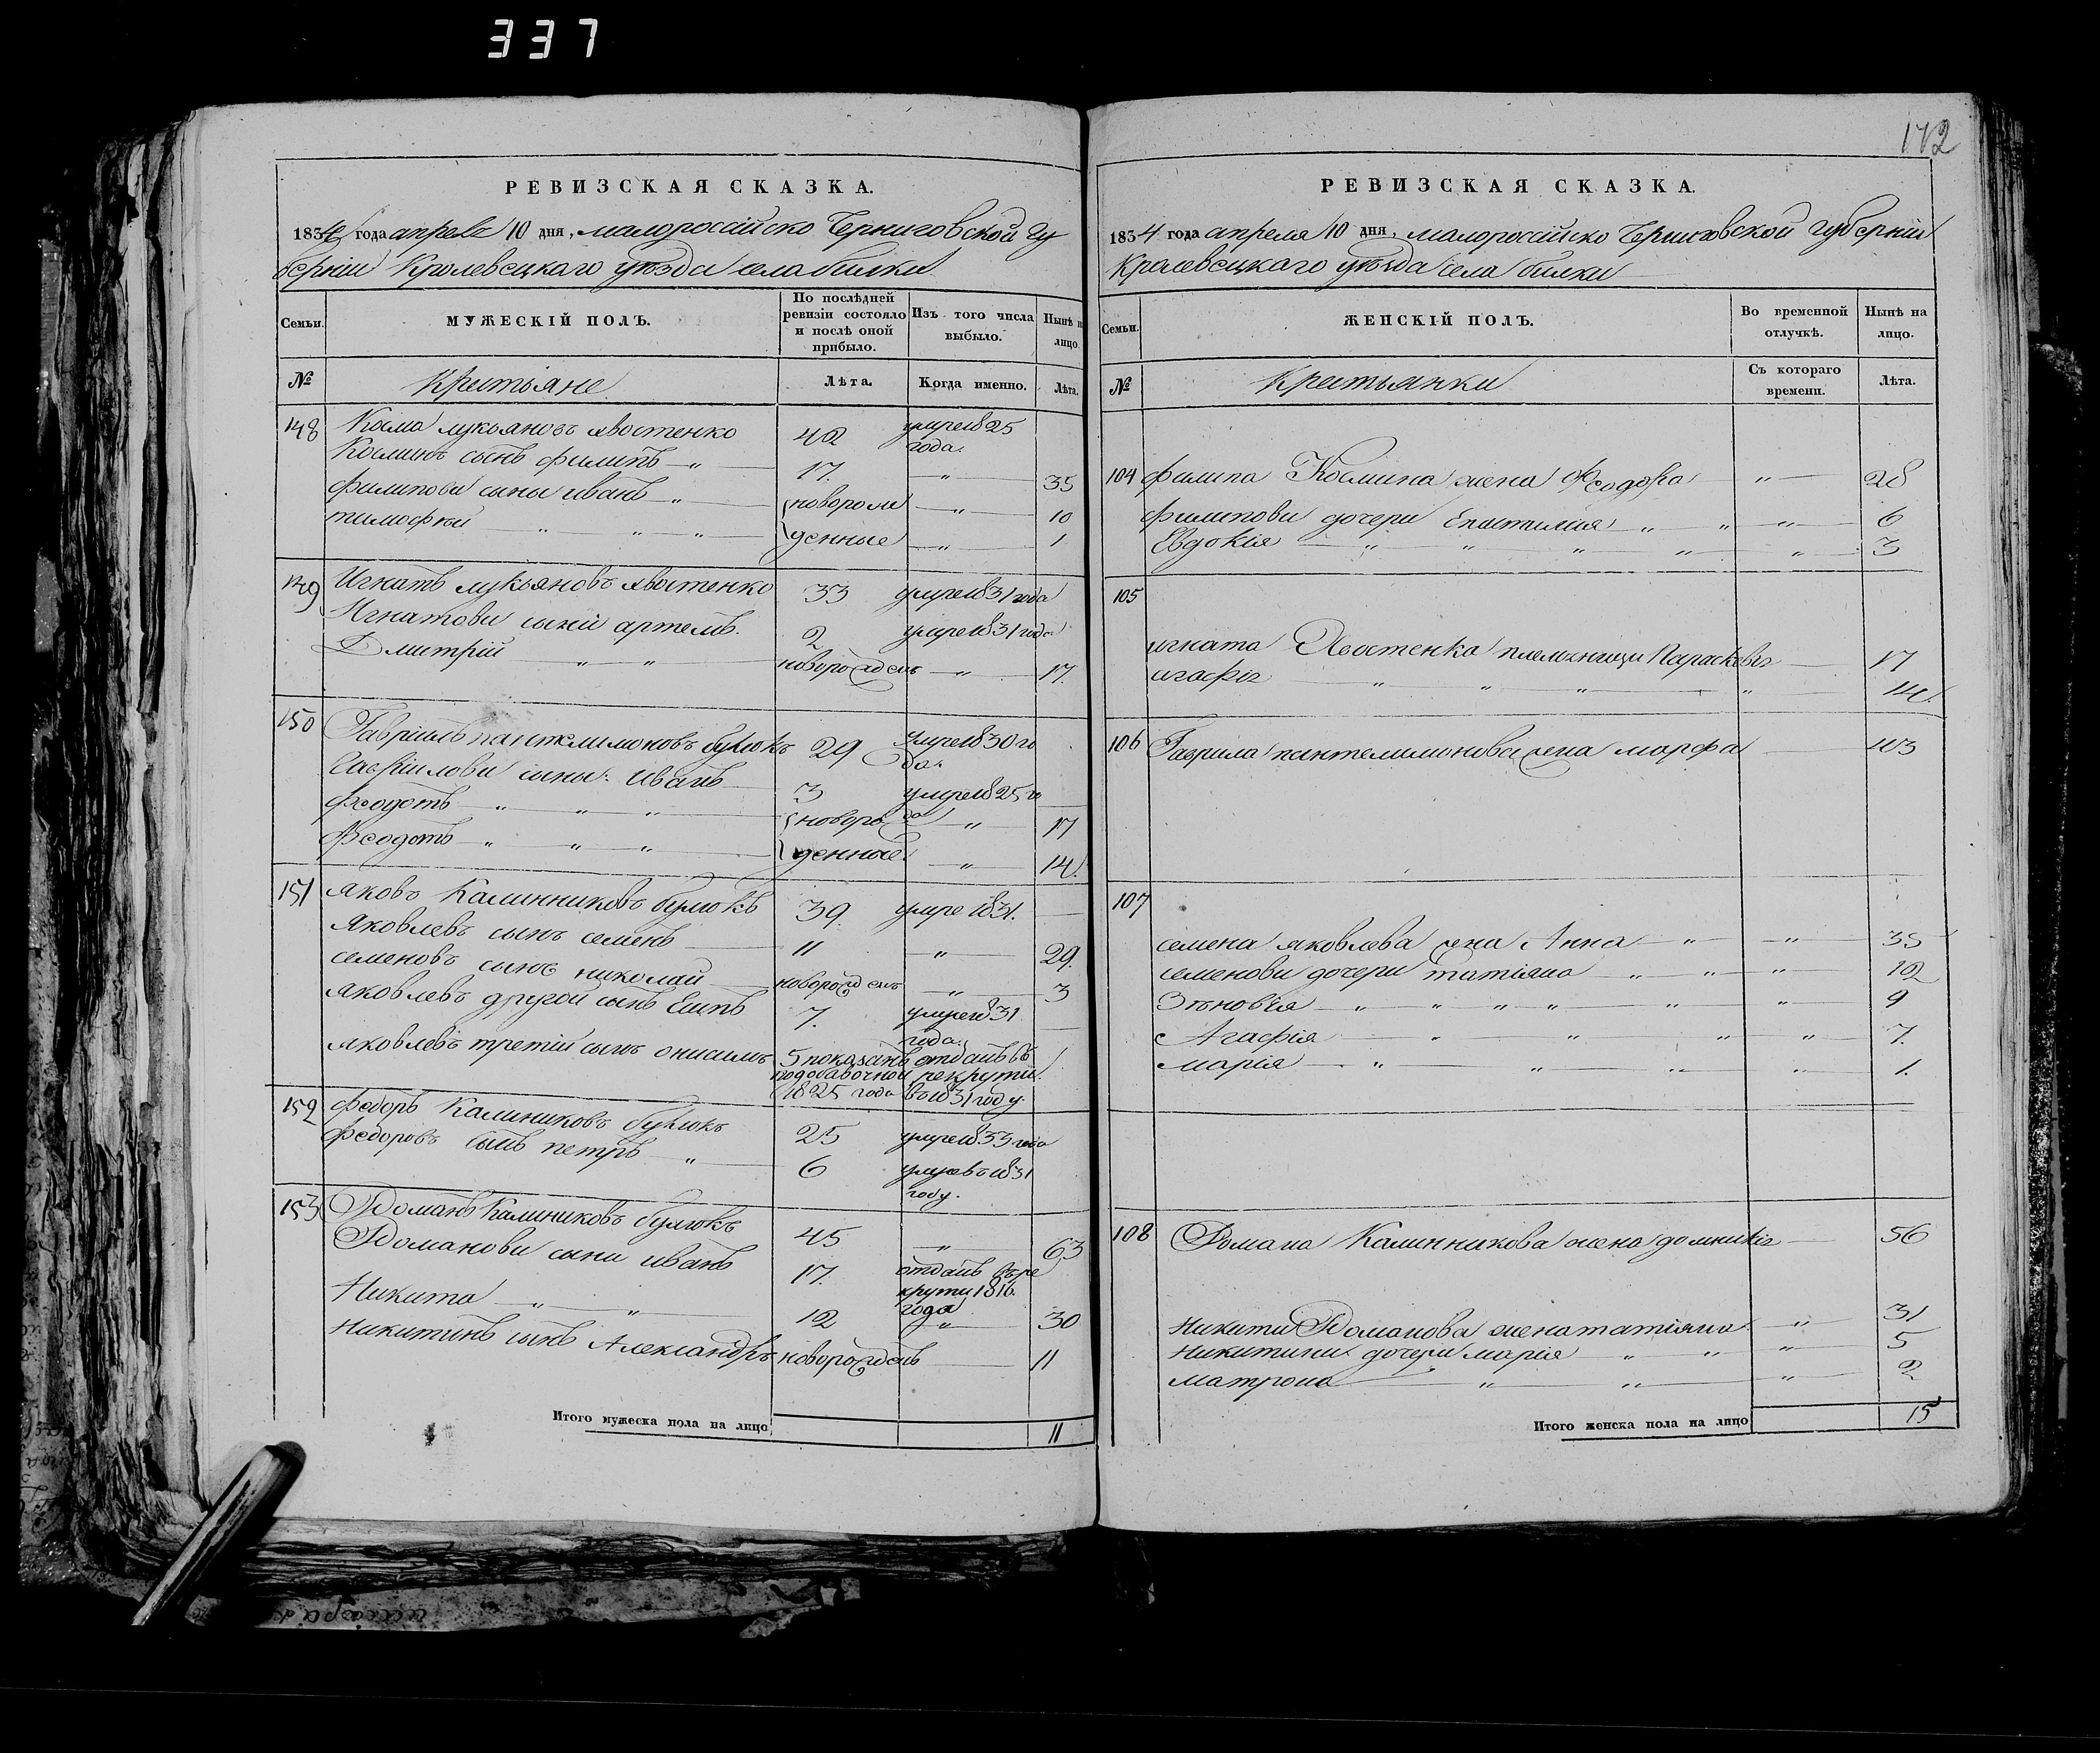 337
172
РЕВИЗСКАЯ СКАЗКА.
1834 года апреля 10 дня, малоросcійско Черниговской гу
берніи Кролевецкаго уѣзда села билки
Семьи.
МУЖЕСКІЙ ПОЛЪ.
По послѣдней ревизіи состояло и послѣ оной прибыло.
Изъ того числа выбыло.
Нынѣ н лицо.
№
Крестьяне
Лѣта.
Когда именно.
Лѣта.
148 Косма лукьяновъ хвостенко 42 умре 1825 года.
Косминъ сынъ филипъ — „ — 17. — „ — 35
филипови сыны иванъ „ — новорож — „ — 10
тимофѣй „ „ — „ — денные — „ — 1
149 Игнатъ лукьяновъ хвостенко 33 умре 1831 года
Игнатови сыни артемъ. 2 умре 1831 года
Дмитрій „ „ — новорожденъ — „ — 17.
150 Гавріилъ пантелимоновъ булюкъ 29 умре 1830 го
да.
Гавріилови сыны: иванъ — 3 умре 1825 го
да
феодотъ — „ „ „ — новорож — „ — 17
Феодотъ — „ „ „ — денные. — „ — 14.
151 яковъ Калинниковъ булюкъ 39. умре 1831. —
яковлевъ сынъ семенъ — 11 — „ — 29.
семеновъ сынъ николай — новорожденъ — „ — 3
яковлевъ другой сынъ Есипъ 7. умре 1831
года. —
яковлевъ третій сынъ онисимъ 5 показанъ отданъ въ
подобавочной рекрути.
1825 года во 1831 году.
152 федоръ Калиниковъ булюкъ 25 умре 1833 года
федоровъ сынъ петръ — „ — 6 умре въ 1831
году.
153 Романъ Калиниковъ булюкъ 45 — „ — 63
Романови сыни иванъ 17. отданъ въ ре
крути 1816.
года
Никита — „ — „ — 12 „ — 30
никитинъ сынъ Александръ новорожденъ — 11
Итого мужеска пола на лицо 11
РЕВИЗСКАЯ СКАЗКА.
1834 года апреля 10 дня, малоросcійско Черниговской губерніи
Кролевецкаго уѣзда села билки
Семьи.
ЖЕНСКІЙ ПОЛЪ.
Во временной отлучкѣ.
Нынѣ на лицо.
№
Крестьянки
Съ котораго времени.
Лѣта.
104 филипа Космина жена Феодора „ — 28
филипови дочери „ „ „ — 6
Евдокія — „ „ „ „ „ — 3
105
игната Хвостенка племенници Параскевія — 17
агафія — „ „ „ — „ — 14.
106 Гаврила пантелимонова жена марфа — 43
107
семена яковлева жена Анна — „ — „ — 35
семенови дочери татіяна — „ — „ — „ — 12
Зѣновія — „ „ „ „ „ — „ — 9
Агафія — „ „ „ — „ — 7.
марія — „ „ „ „ — 1.
108 Романа Калинникова жена домникія — 56
никити Романова жена татіяна „ — 31
никитини дочери марія „ „ „ — 5
матрона — „ „ — „ — 2
Итого женска пола на лицо 15